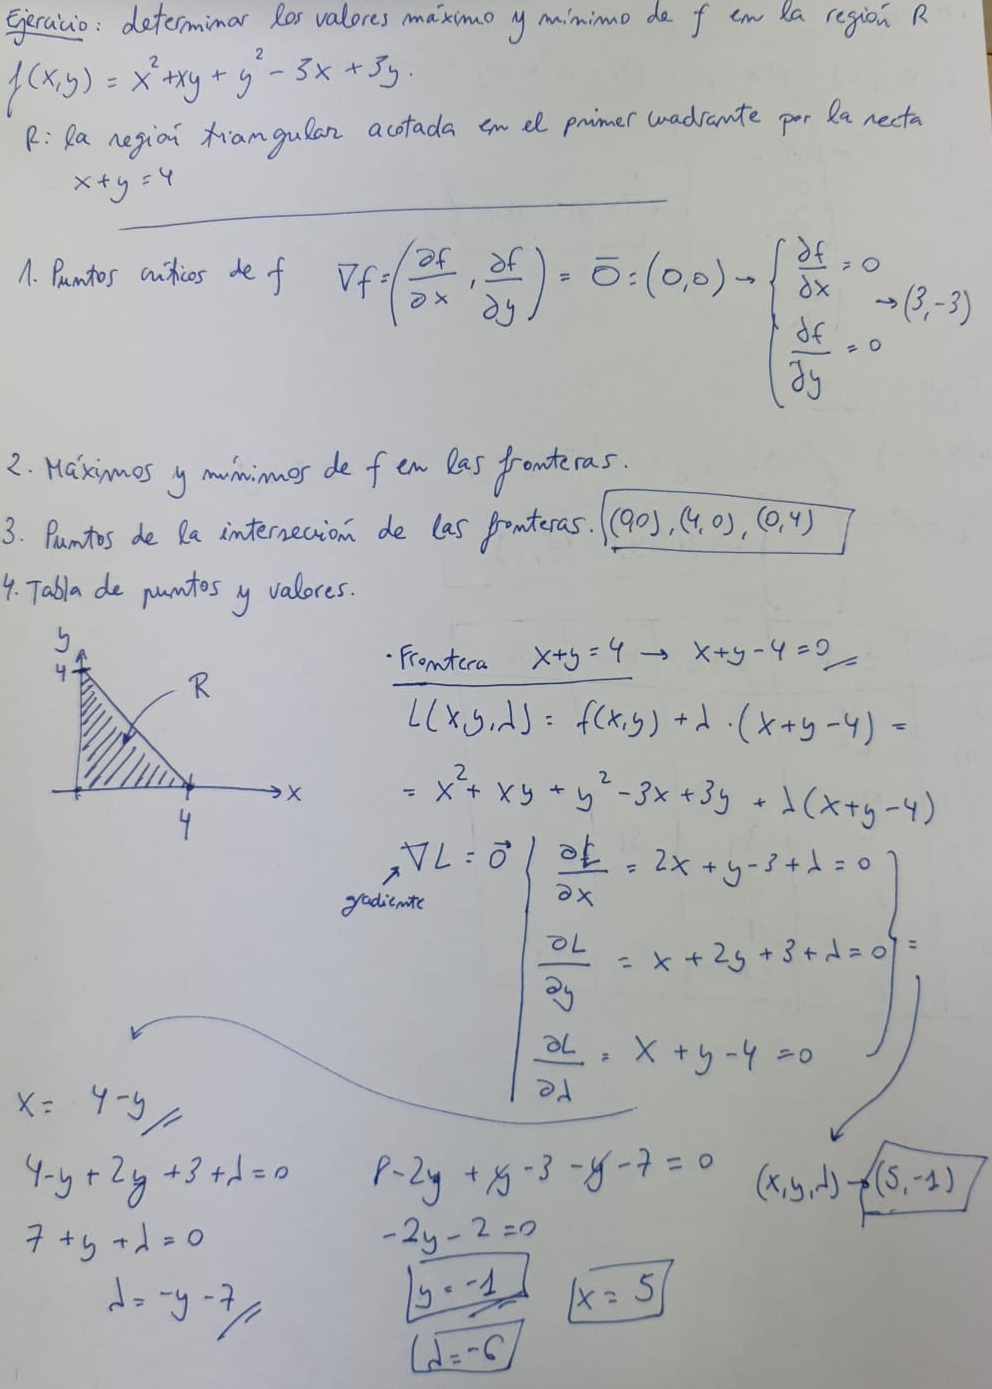 Ejercicio: determinar los valores máximo y mínimo de f en la región R
f(x,y) = x² + xy + y² - 3x + 3y.
R: la región triangular acotada en el primer cuadrante por la recta
x+y = 4
1. Puntos críticos de f ∇f = (∂f/∂x , ∂f/∂y) = 0̄ = (0,0) → { ∂f/∂x = 0 ∂f/∂y = 0 → (3,-3)
2. Máximos y mínimos de f en las fronteras.
3. Puntos de la intersección de las fronteras. (0,0), (4,0), (0,4)
4. Tabla de puntos y valores.
y
4
R
x
4
· Frontera x+y = 4 → x+y-4 = 0
L(x,y,λ) = f(x,y) + λ·(x+y-4) =
= x² + xy + y² - 3x + 3y + λ(x+y-4)
∇L = 0⃗
gradiente
∂L/∂x = 2x + y - 3 + λ = 0
∂L/∂y = x + 2y + 3 + λ = 0 =
∂L/∂λ = x + y - 4 = 0
x = 4-y
4-y + 2y + 3 + λ = 0
7 + y + λ = 0
λ = -y - 7
8 - 2y + y - 3 - y - 7 = 0
-2y - 2 = 0
y = -1 x = 5
λ = -6
(x,y,λ) → (5,-1)